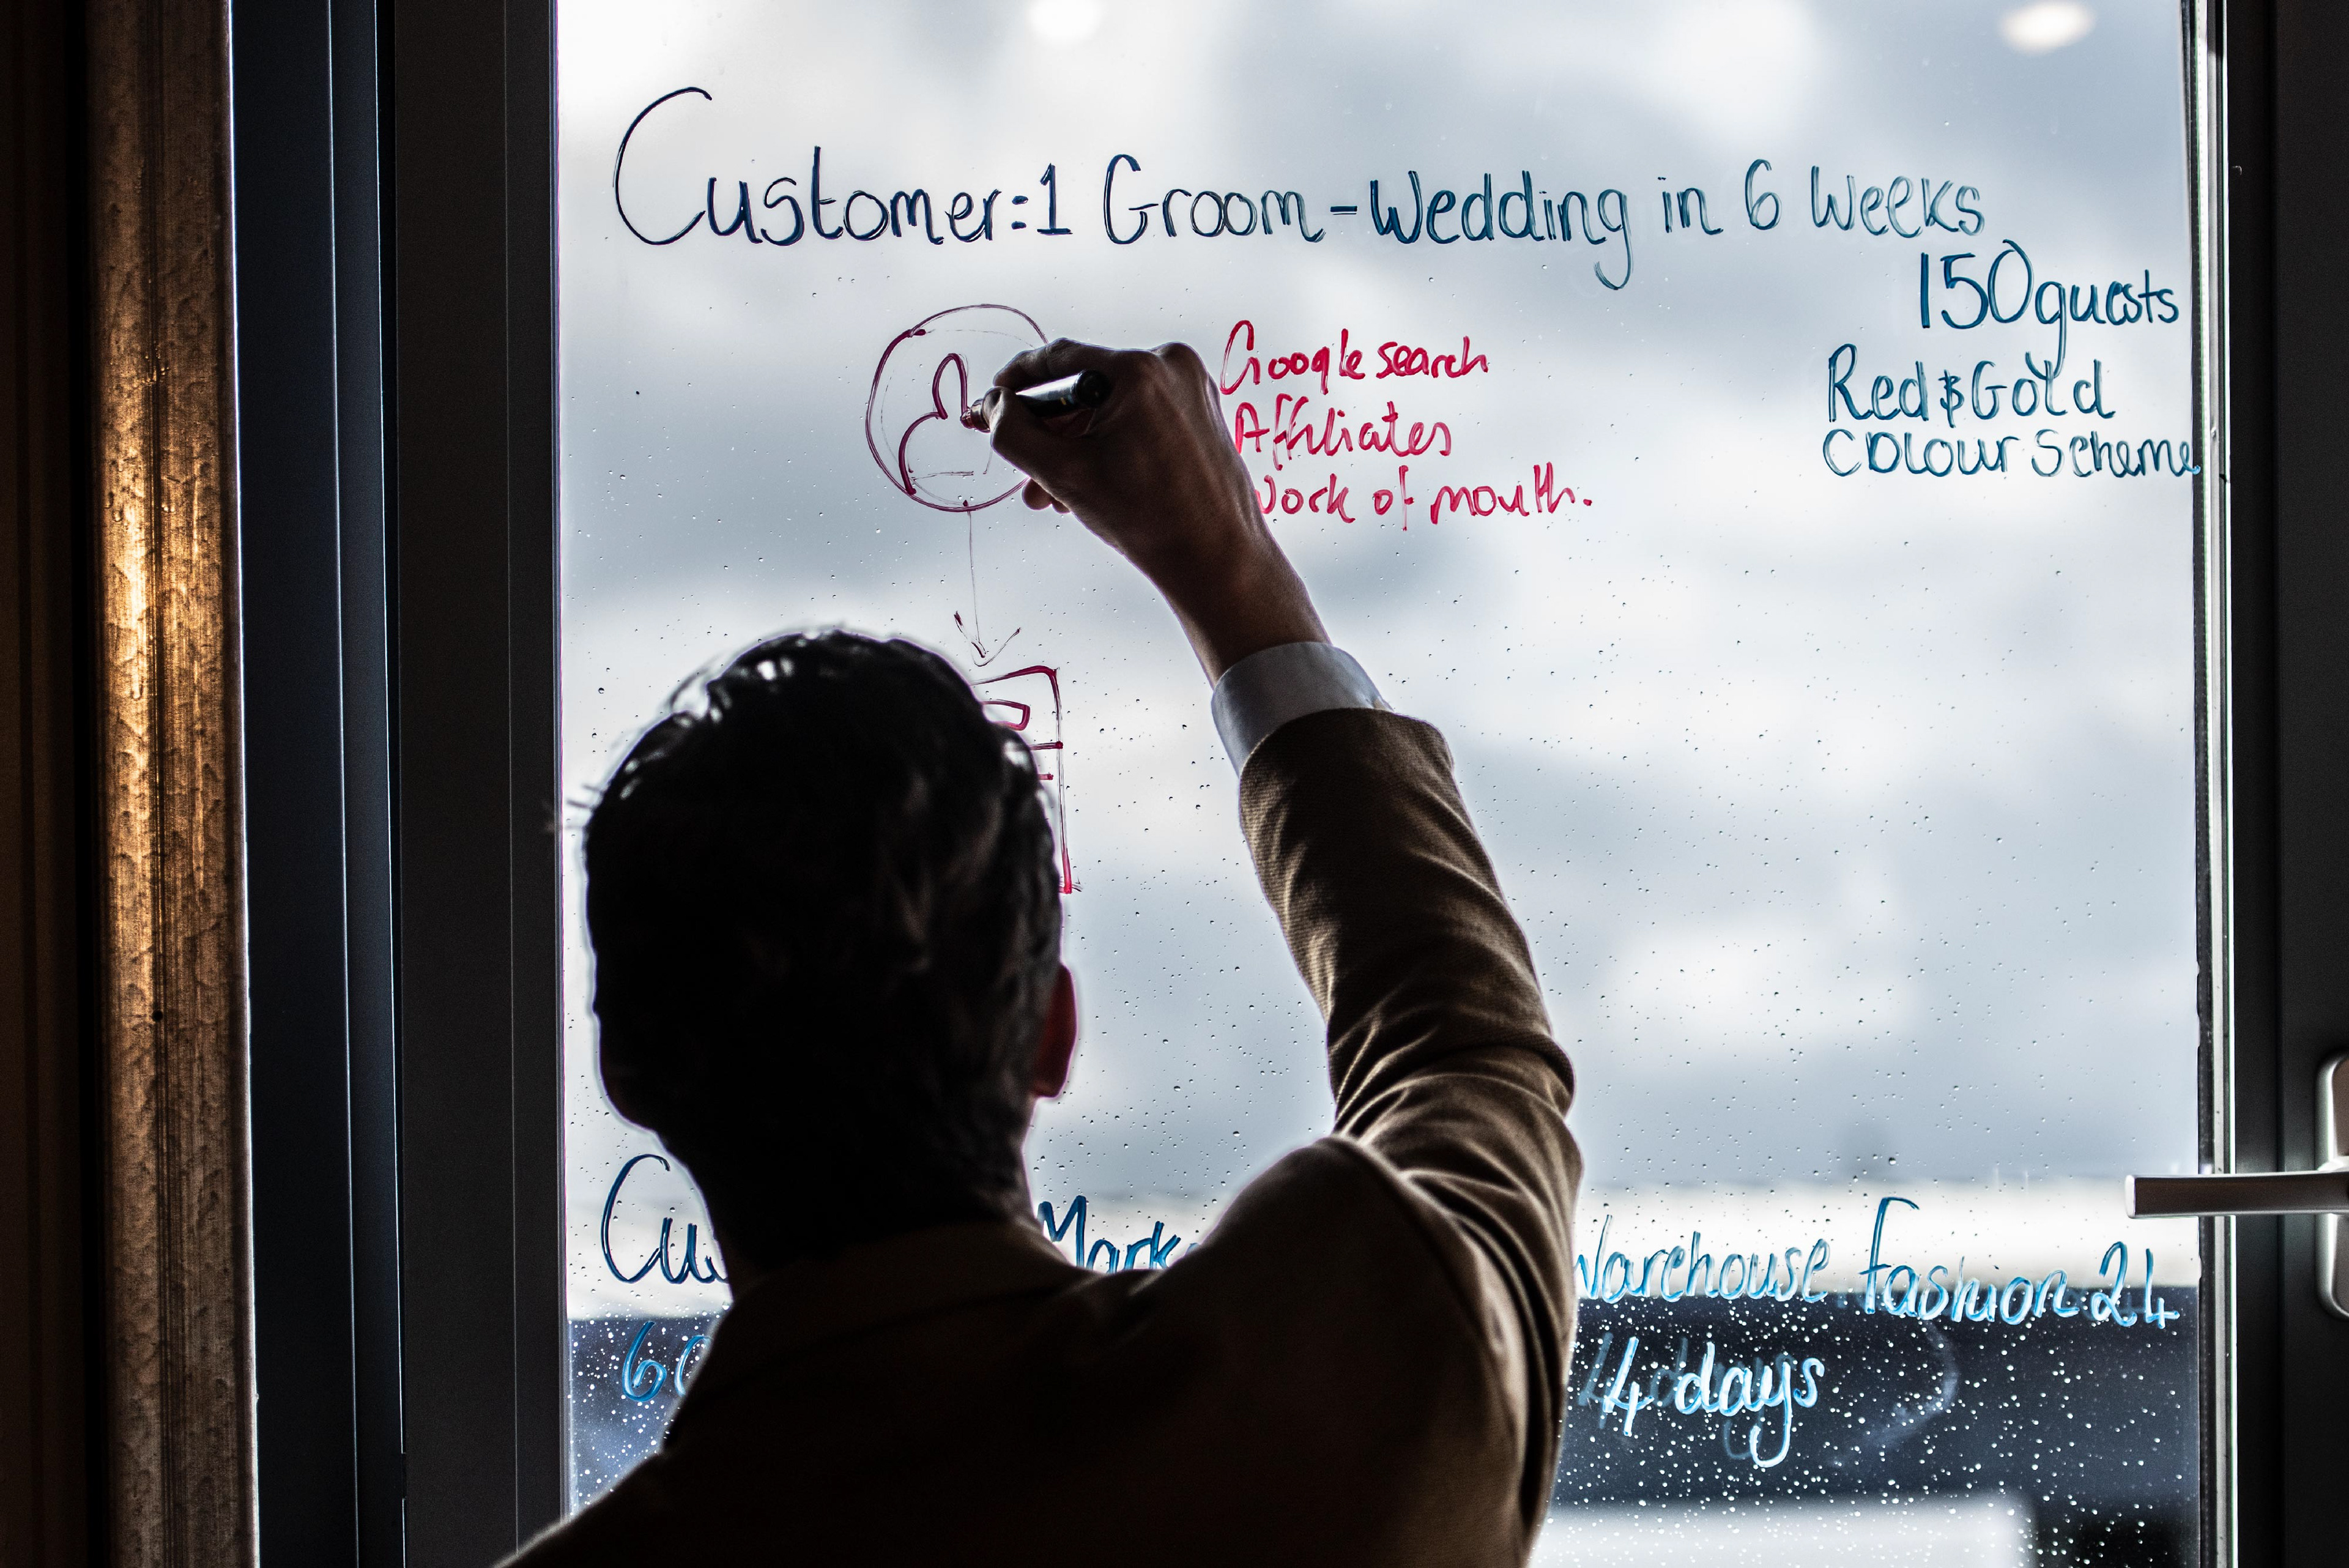 Customer:1 Groom-Wedding in 6 Weeks
150guests
Red & Gold
Colour Scheme
Google search
Affiliates
Work of mouth.
Warehouse fashion 24
4 days